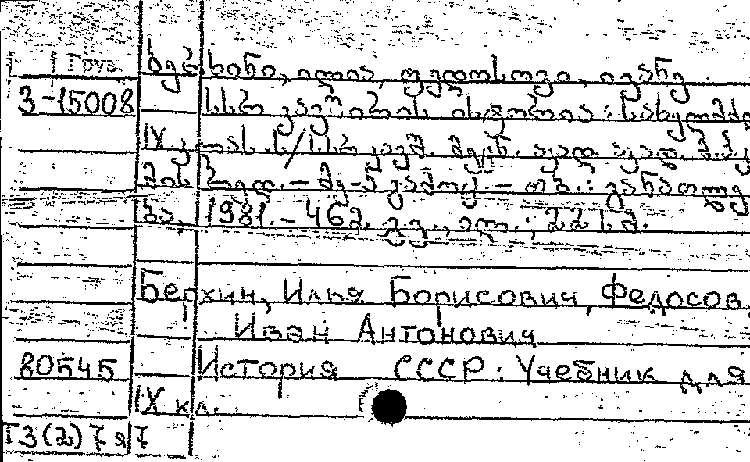 Груз.
ბერხინი, ილია, ფედოსოვი, ივანე
3-15008 სსრ კავშირის ისტორია : სახელმძღ
IX კლას. ს/სსრ კავშ. მეცნ. აკად.
მის რედ. – მე-5 გამოც. – თბ. : განათლე
ბა, 1981. – 462 გვ., ილ. ; 22 ს.მ.
Берхин, Илья Борисович, Федосов,
Иван Антонович
80545 История СССР: Учебник для
IX кл.
Т3(2)7я7